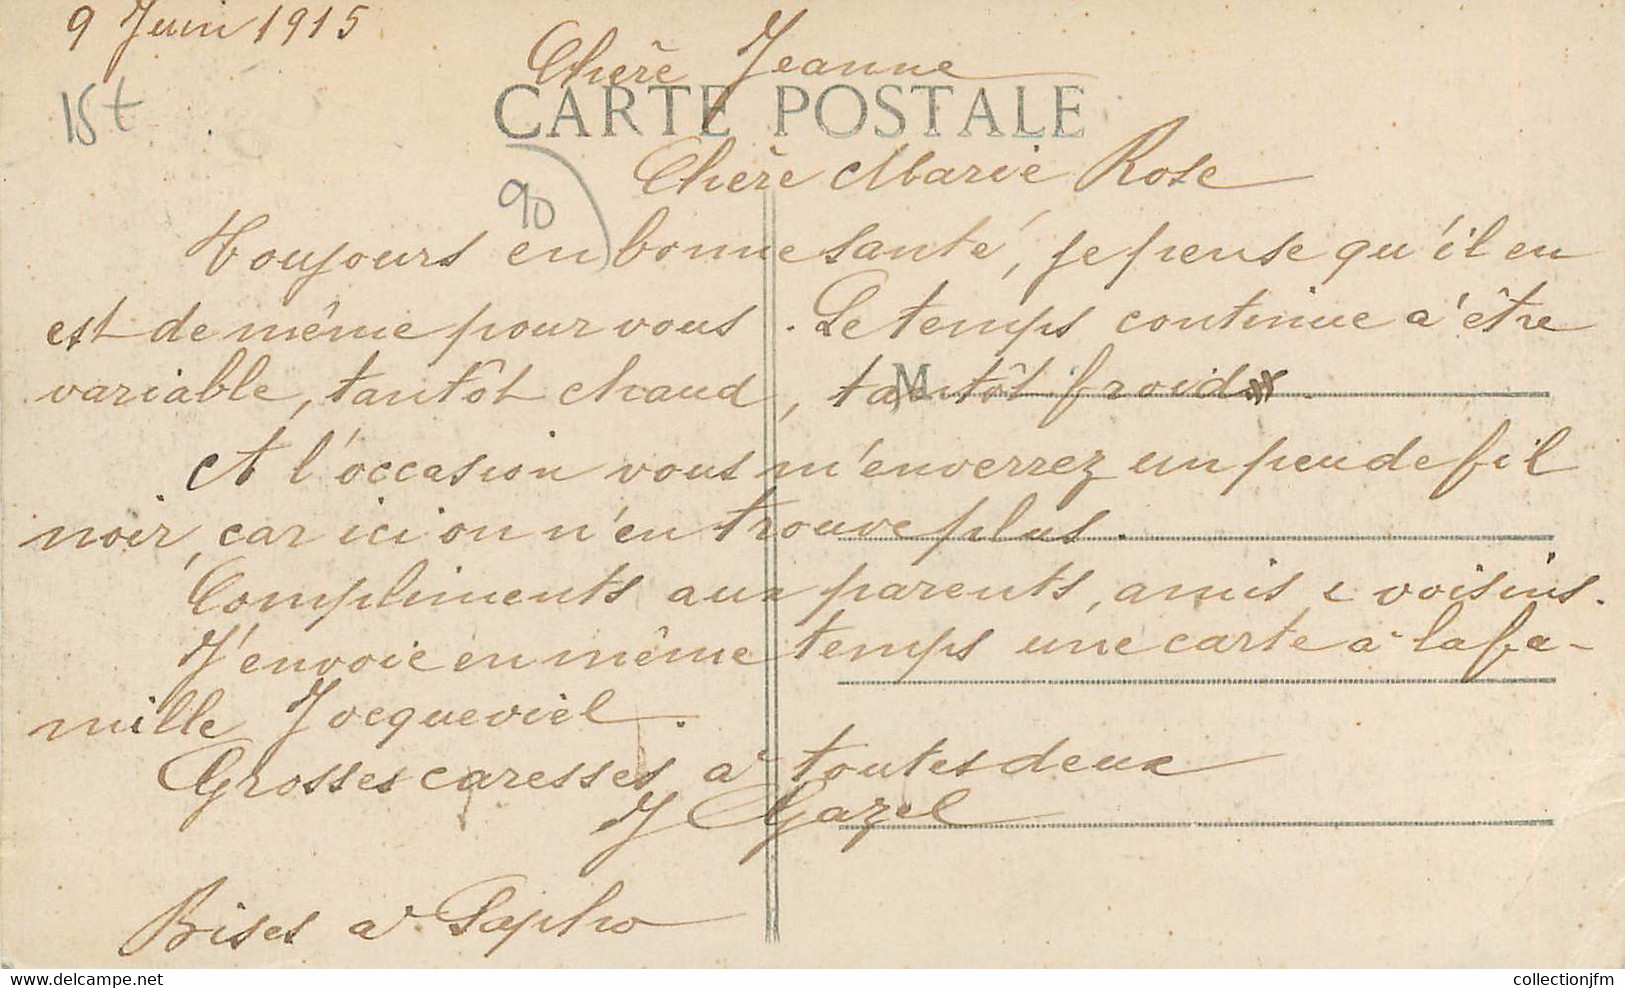 9 Juin 1915
15t
Chère Jeanne
CARTE POSTALE
90
Chère Marie Rose
Toujours en bonne santé, je pense qu'il en
est de même pour vous. Le temps continue à être
variable, tantôt chaud, tantôt froid
M
A l'occasion vous m'enverrez un peu de fil
noir, car ici on n'en trouve plus.
Compliments aux parents, amis & voisins.
J'envoie en même temps une carte à la fa-
mille Jocqueviel.
Grosses caresses à toutes deux
J Gazel
Bises à Sapho
collectionjfm